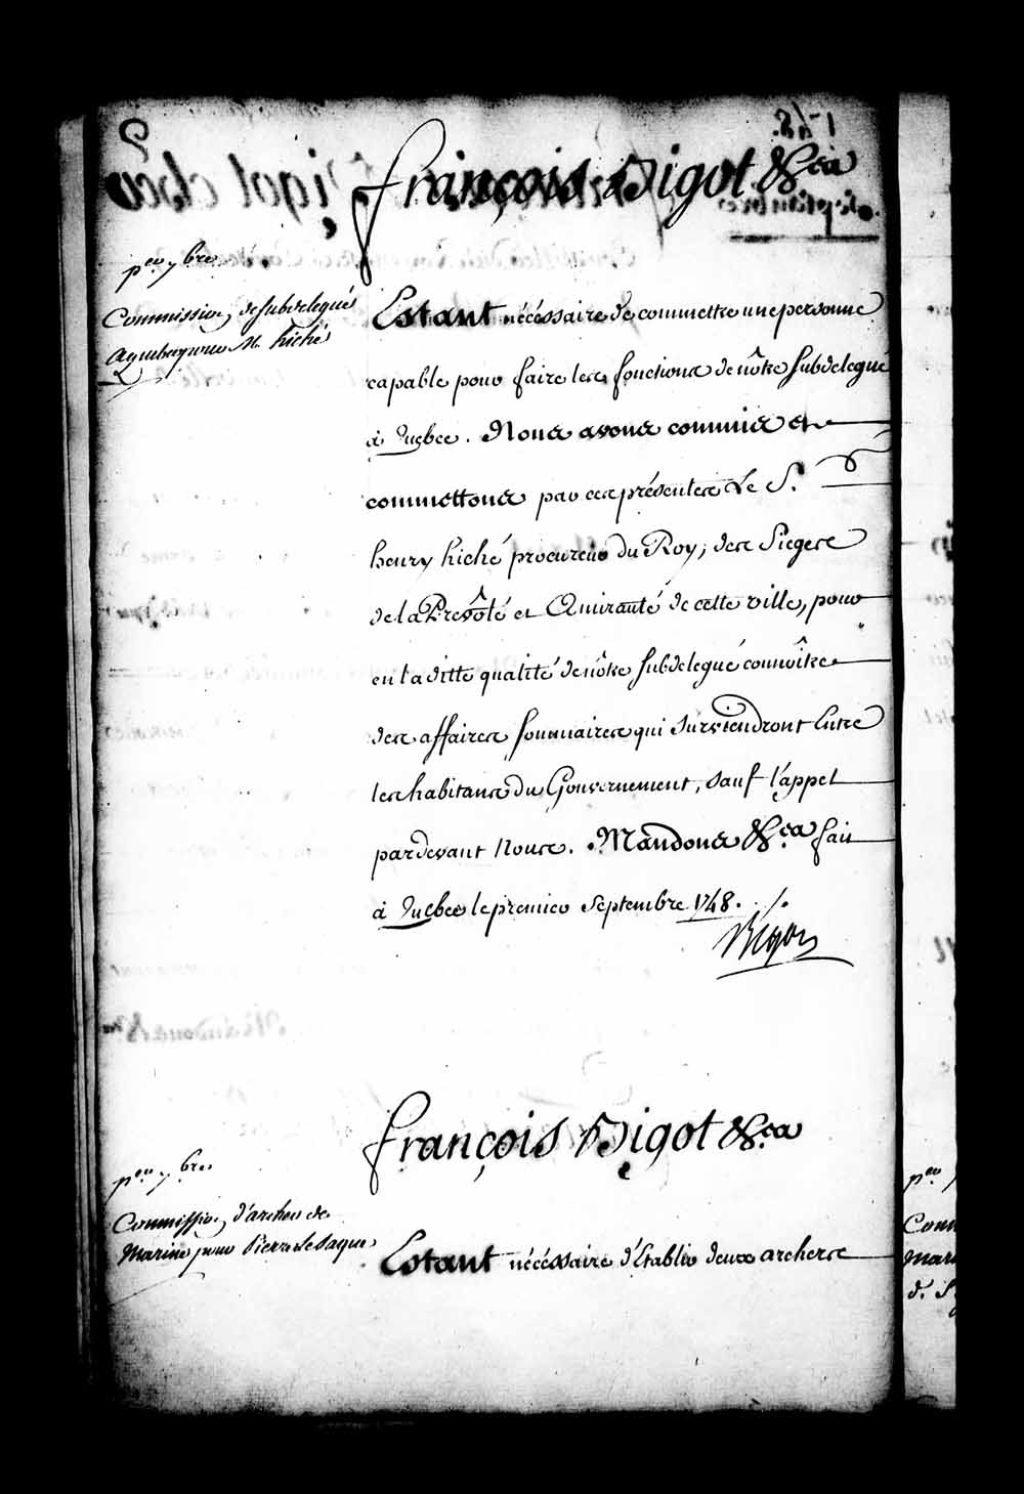 François Bigot &c.a
p.er 7bre
Commission de subdelegué
a quebec pour M. hiché
Estant nécéssaire de commettre une personne
capable pour faire les fonctions de nôtre subdelegué
à Quebec. Nous avons commis et
commettons par ces présentes Le S.r
henry hiché procureur du Roy, des Sieges
de la Prevôté et Amirauté de cette ville, pour
en la ditte qualité de nôtre subdelegué connoître
des affaires sommaires qui surviendront Entre
les habitans du Gouvernement, sauf l'appel
pardevant Nous. Mandons &c.a fait
à Quebec le premier Septembre 1748. ./.
Bigot
François Bigot &c.a
p.er 7bre
Commission d'archer de
Marine pour Pierre
Estant nécéssaire d'Etablir deux archers